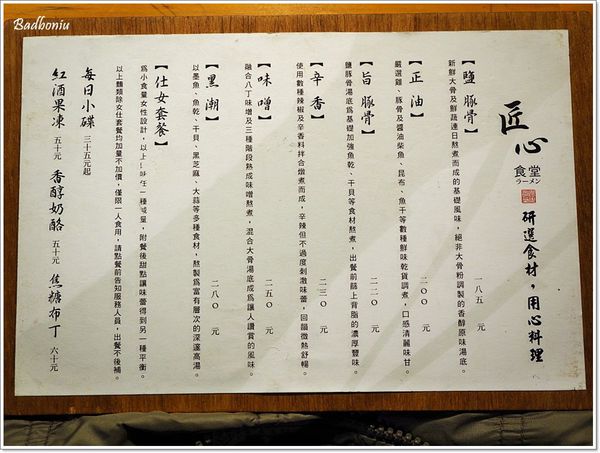 Badboniu
匠心
食堂
ラーメン
研選食材，用心料理
【鹽豚骨】
新鮮大骨及鮮蔬連日熬煮而成的基礎風味，絕非大骨粉調製的香醇原味湯底。
一八五 元
【正油】
嚴選雞、豚骨及醬油柴魚、昆布、魚干等數種鮮味乾貨調煮，口感清麗味甘。
二００ 元
【旨豚骨】
鹽豚骨湯底為基礎加強魚乾、干貝等食材熬煮，出餐前篩上背脂的濃厚豐味。
二二０ 元
【辛香】
使用數種辣椒及辛香料拌合燉煮而成，辛辣但不過度刺激味蕾，回韻微熱舒暢。
二三０ 元
【味噌】
融合八丁味增及三種階段熟成味噌熬煮，混合大骨湯底成為讓人讚賞的風味。
二五０ 元
【黑潮】
以墨魚、魚乾、干貝、黑芝麻、大蒜等多種食材，熬製為富有層次的深邃高湯。
二八０ 元
【仕女套餐】
為小食量女性設計，以上
一種減量，附餐後甜點讓味蕾得到另一種平衡。
以上麵類除女仕套餐均加量不加價，僅限一人食用，請點餐前告知服務人員，出餐不後補。
每日小碟 三十五元起
紅酒果凍 五十元 香醇奶酪 五十元 焦糖布丁 六十元